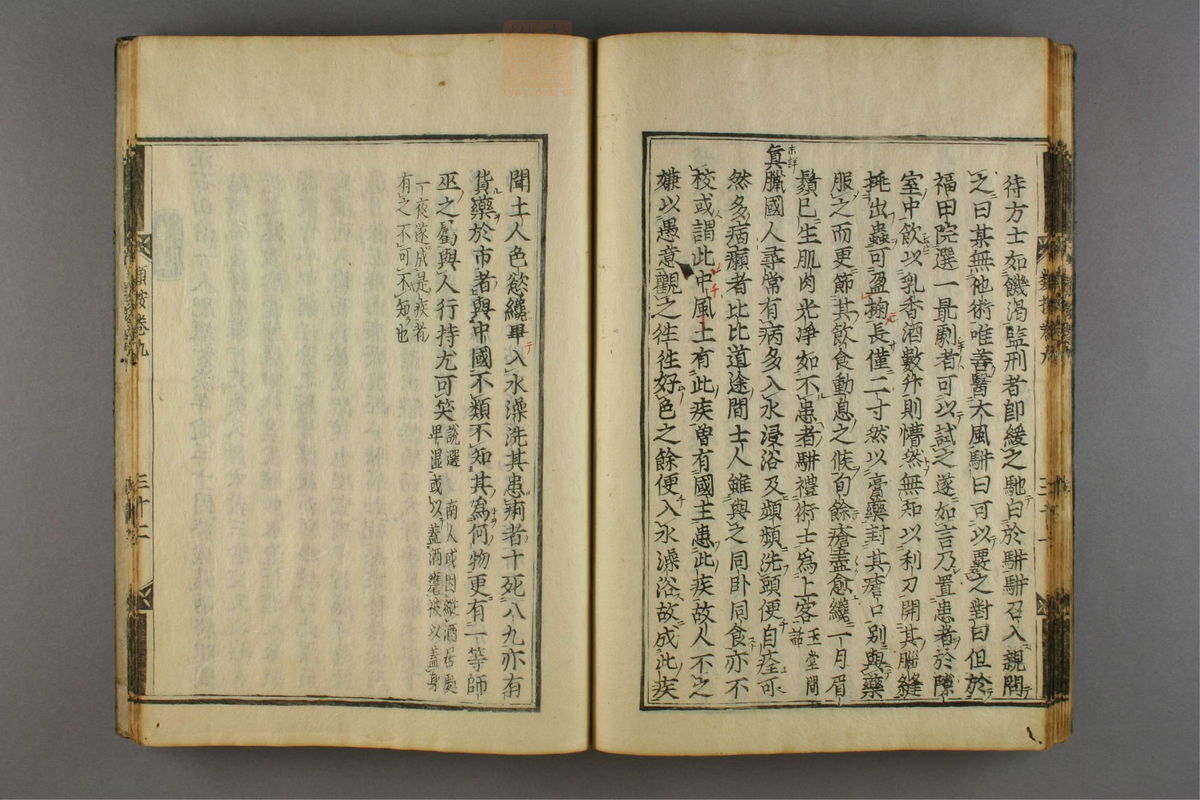 待方士如饑渴監刑者即緩之馳白於駢駢召入親問
之曰某無他術唯善醫大風駢曰可以覈之對曰但於
福田院選一最劇者可以試之遂如言乃置患者於隙
室中飲以乳香酒數升則懵然無知以利刀開其腦縫
挑出蟲可盈掬長僅二寸然以膏藥封其瘡口別與藥
服之而更節其飲食動息之候旬餘瘡盡愈纔一月眉
鬚已生肌肉光淨如不患者駢禮術士為上客玉堂閒話
未詳
真臘國人尋常有病多入水浸浴及頻頻洗頭便自痊可
然多病癩者比比道途間士人雖與之同臥同食亦不
校或謂此中風土有此疾曾有國主患此疾故人不之
嫌以愚意觀之往往好色之餘便入水澡浴故成此疾
聞土人色慾纔畢入水澡洗其患痢者十死八九亦有
貨藥於市者與中國不類不知其為何物更有一等師
巫之屬與人行持尤可笑說選
南人或因縱酒居處
卑濕或以蓋酒甕被以蓋身
一夜遂成是疾者
有之不可不知也
類按卷九
三十二